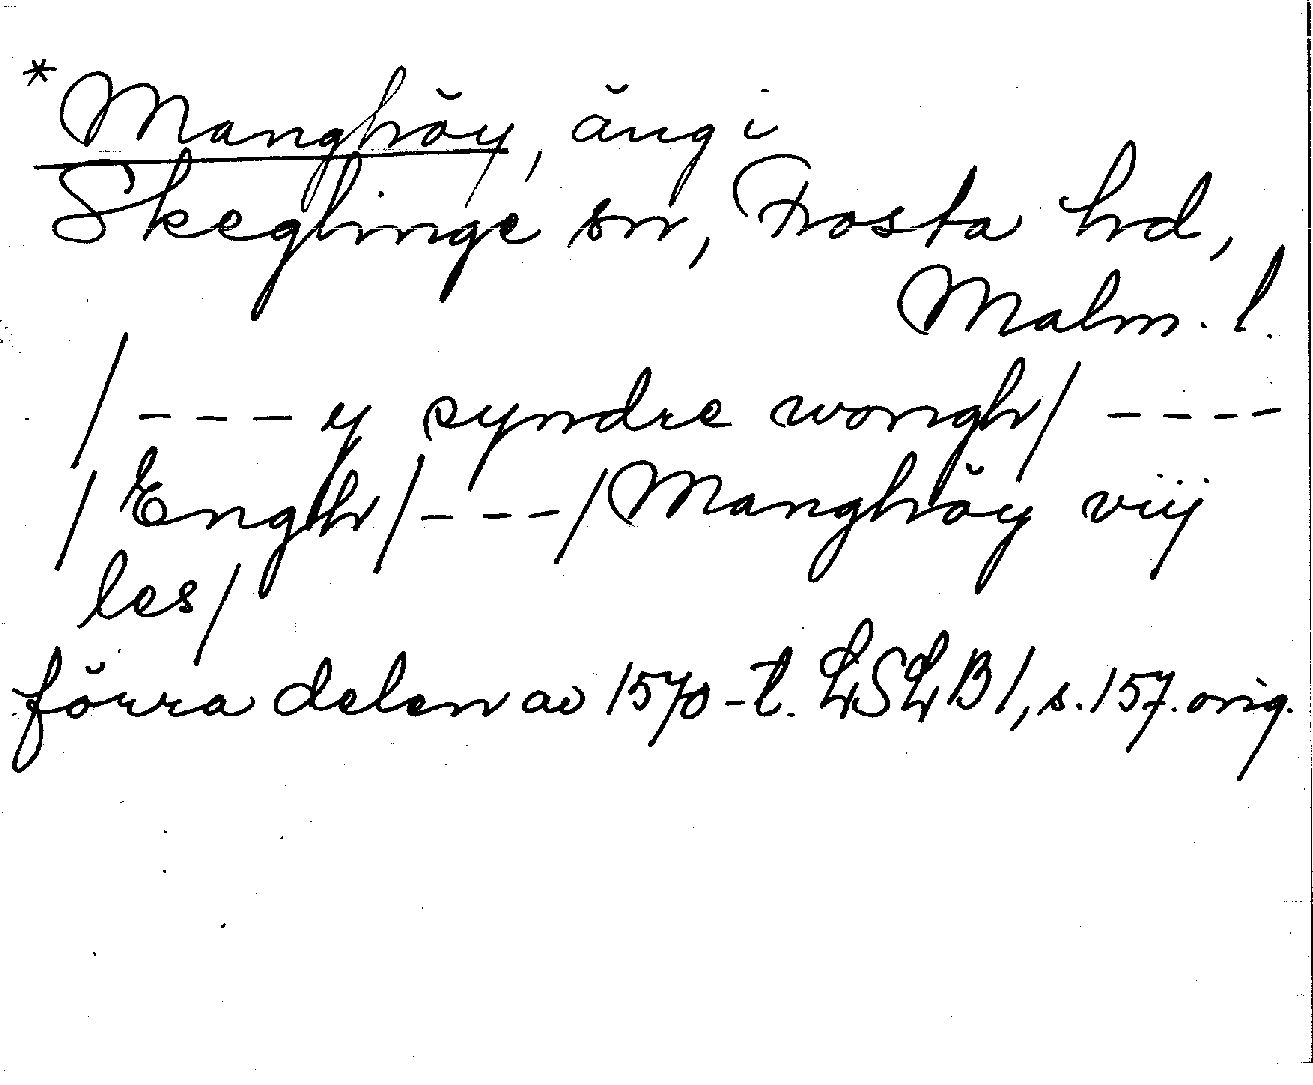 *Manghöy, äng i
Skeglinge sn, Frosta hd,
Malm. l.
/ - - - y syndre wongh/ - - - -
/Engh/ - - - /Manghöy viij
les/
förra delen av 1570-t. LSLB1, s. 157. orig.